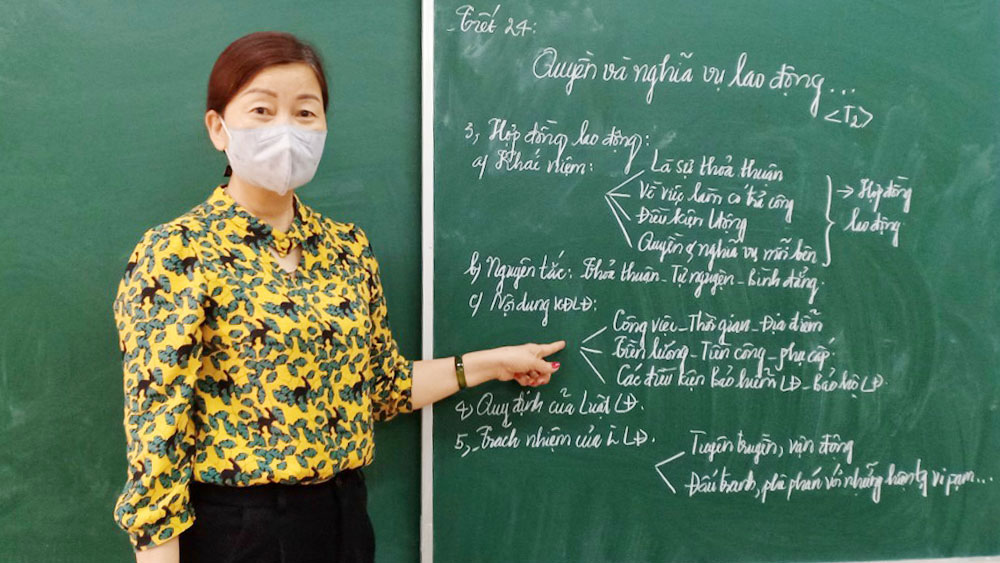 Tiết 24:
Quyền và nghĩa vụ lao động...
<T2>
3, Hợp đồng lao động:
a) Khái niệm:
Là sự thoả thuận
Về việc làm có trả công
Điều kiện lđộng
Quyền & nghĩa vụ mỗi bên
→ Hợp đồng
lao động
b) Nguyên tắc: Thoả thuận - Tự nguyện - Bình đẳng.
c) Nội dung HĐLĐ:
Công việc - Thời gian - Địa điểm
Tiền lương - Tiền công - phụ cấp.
Các điều kiện Bảo hiểm LĐ - Bảo hộ LĐ.
4) Quy định của Luật LĐ.
5, Trách nhiệm của LĐ.
Tuyên truyền, vận động
Đấu tranh, phê phán với những vi phạm...